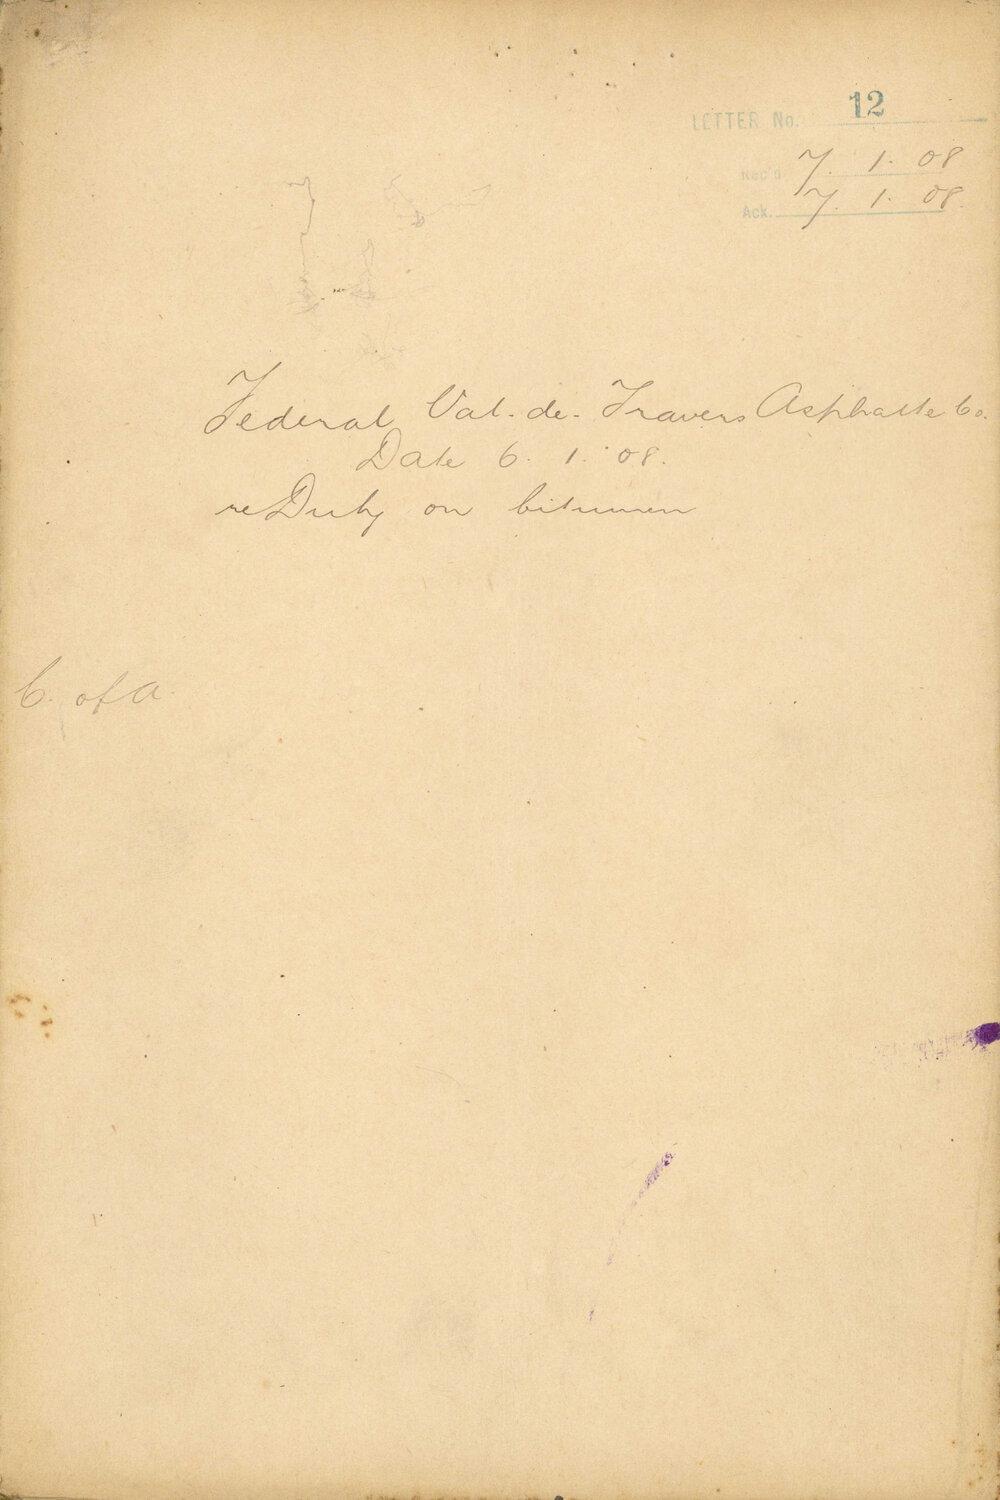 LETTER No. 12
Rec'd 7. 1. 08
Ack. 7. 1. 08.
Federal Val-de-Travers Asphalte Co.
Date 6. 1. 08.
re Duty on bitumen
C. of A.